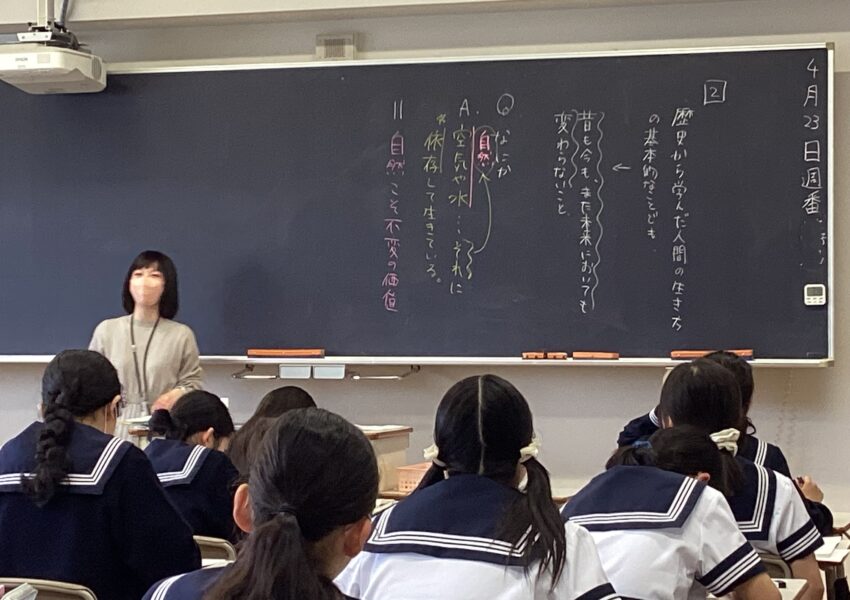 4月23日週番
2
歴史から学んだ人間の生き方
の基本的なことども
←
昔も今も、また未来においても
変わらないこと
Q なにか
自然
A. 空気や水…それに
依存して生きている。
自然こそ不変の価値
EPSON